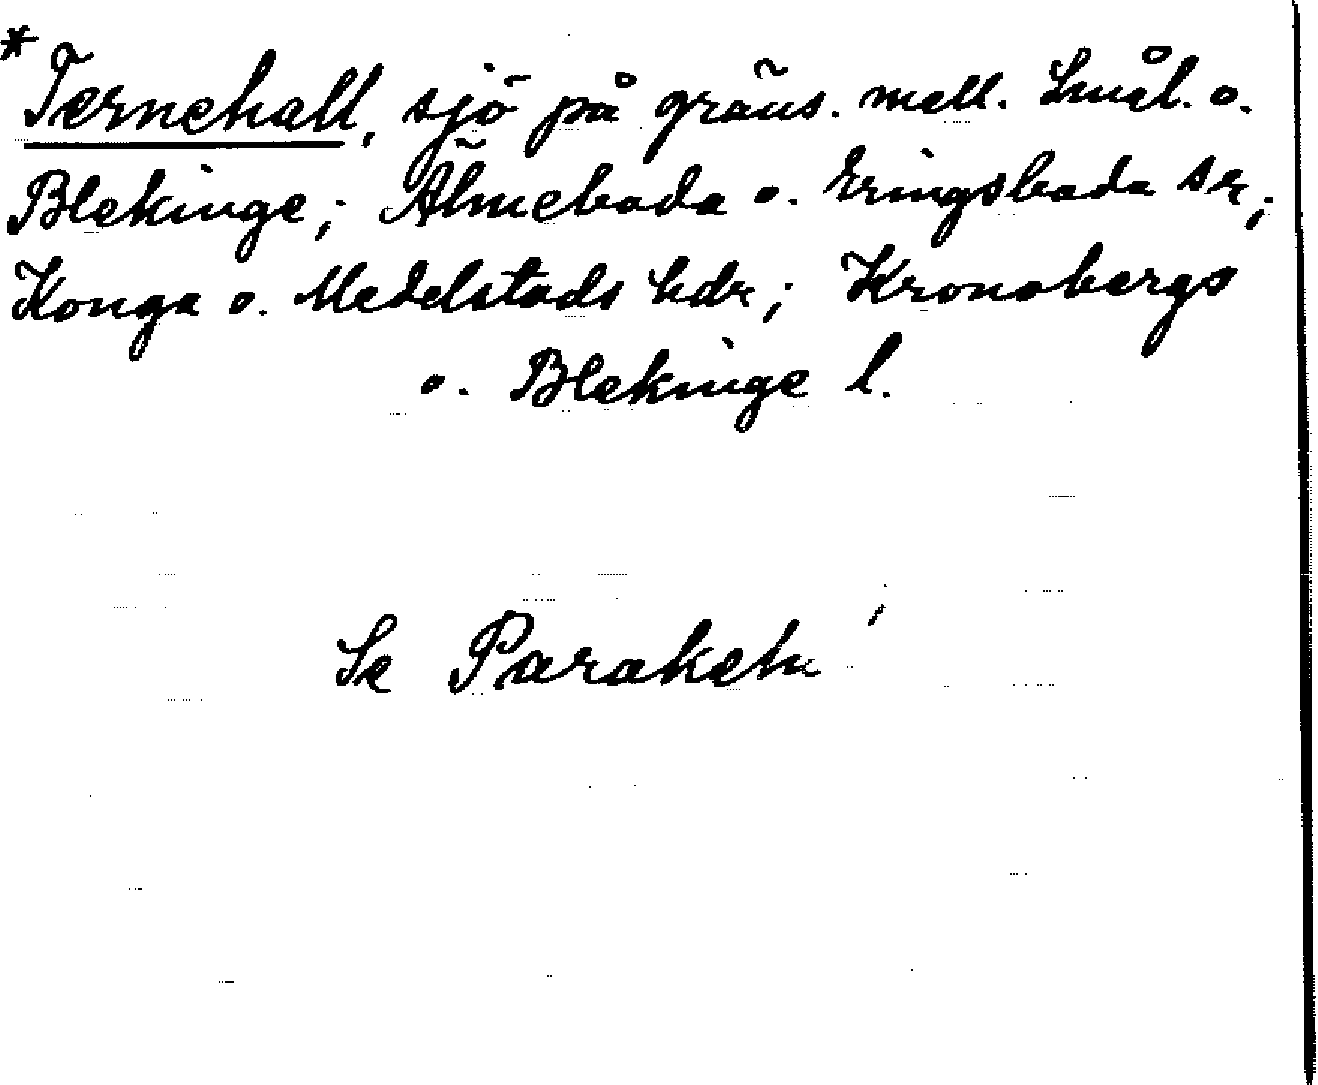 *Ternehall, sjö på gräns. mell. Smål. o.
Blekinge; Älmeboda o. Eringsboda snr;
Konga o. Medelstads hdr; Kronobergs
o. Blekinge l.
Se